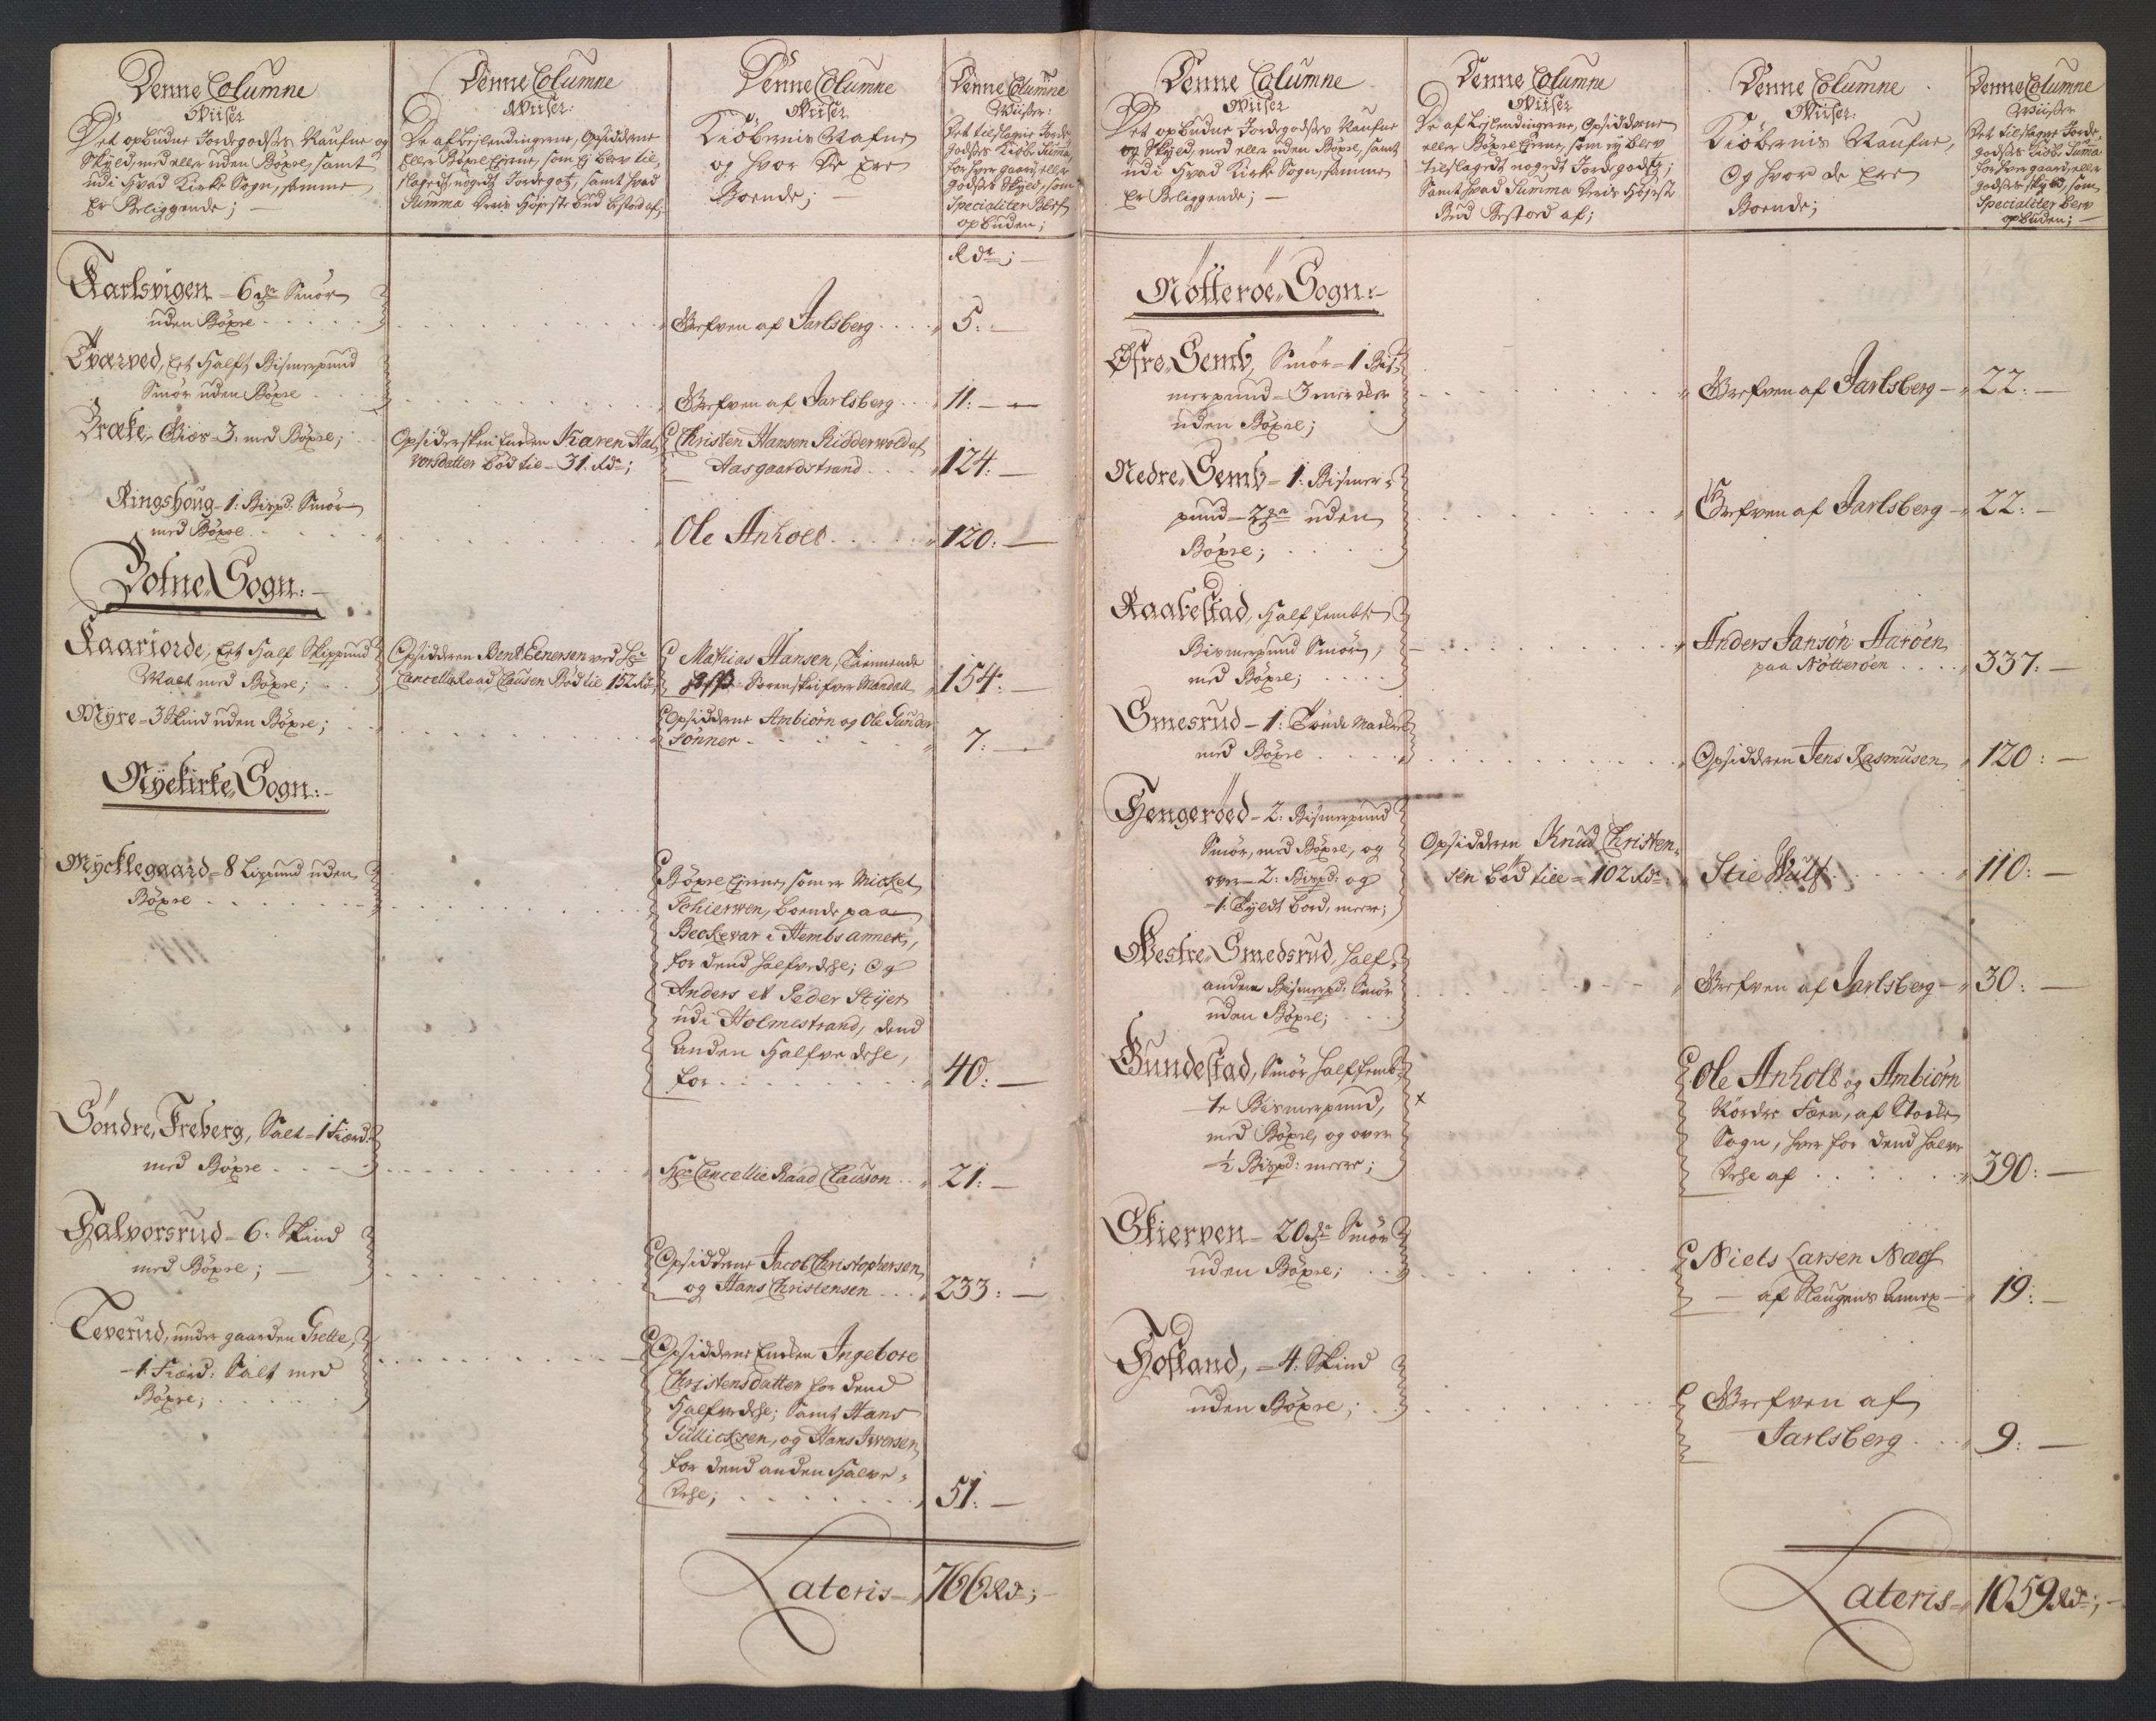 Denne Columne
Wiiser
Det opbudne Jordegodses Naufne og
Skyld med eller uden Böxel, samt
udi hvad Kirke Sogn, samme
Er Beliggende; —
Denne Columne
Wiiser:
De af Leylendingerne, Opsidderne
Eller Böxel Ejerne, som ej blev til,
slaget noget Jordegotz, samt hvad
Summa deris höyeste bud bestod af;
Denne Columne
Wiiser
Kiöbernis Nafne
og hvor De Ere
Boende; —
Denne Columne
Wiisser:
Det tilslagne Jorde
godses Kiöb Summa,
for hver gaard, eller
godses Skyld, som
Specialiter Blef
opbuden;
Rdr; —
Karlsvigen — 6 mk Smör
uden Böxle
Grefven af Jarlsberg
5: —
Tværved, Eet Halft Bismerpund
Smör uden Böxle
Grefven af Jarlsberg
11: —
Bræke, 3: med Böxel;
Opsidersken Enken Karen Hal,
vorsdatter bød til 31 Rdr;
Christen Hansen Ridderwold af
Aasgaardstrand
124: —
Ringshoug 1: Bispd: Smör
med Böxel
Ole Anholt
120: —
Botne Sogn: —
Kaarjorde, Eet Half Skippund
Malt med Böxel;
Opsidderen Bent Eenersen ved Hr
Cancellie Raad Clausen Bød til 152 Rdr
Mathias Hansen, Tiennende
hoss Sorenskrifver Mandall
154: —
Myre — 3 Skind uden Böxle;
Opsidderne Ambiörn og Ole Gunder
Sönner
7: —
Nyekirke Sogn: —
Mycklegaard 8 Lispund uden
Böxle
Böxle Ejerne, som er Mickel
Schierwen, boende paa
Beckevar i Hembs annex,
for dend halfve dehl; Og
Anders et Peder Styer
udi Holmestrand, dend
Anden Halfve dehl,
for
40: —
Söndre Freberg, Salt — 1 Fierd:
med Böxle
Hr Cancellie Raad Clauson
21: —
Halvorsrud — 6: Skind
med Böxel; —
Opsidderne Jacob Christophersen
og Hans Christensen
233: —
Teverud, under gaarden Grette,
1. Fierd: Salt med
Böxle;
Opsidderne Enken Ingebore
Christensdatter for dend
Halfve dehl; samt Hans
Gullicksen, og Hans Iwersen
for dend anden Halve
Dehl;
51: —
Lateris — 766 Rdr; —
Denne Columne
Wiiser
Det opbudne Jordegodses Naufne
og Skyld, med eller uden Böxel, samt
udi hvad Kirke Sogn, samme
Er Beliggende; —
Denne Columne
Wiiser
De af Leylendingerne, Opsidderne
eller Böxel Ejerne, som ey blev
tilslaget noget Jordegods;
Samt hvad Summa deris Höjeste
Bud Bestod af;
Denne Columne
Wiiser:
Kiöbernis Naufne,
Og hvor de Ere
Boende;
Denne Columne
Wiisser
Det tilslagne Jorde,
godses Kiöb Summa
for hver gaard, eller
godses skyld, som
Specialiter blev
opbuden; —
Nötteröe Sogn: —
Öfre Semb, Smör — 1 Bis,
merpund — 3 merker
uden Böxle;
Grefven af Jarlsberg —
22: —
Nedre Semb — 1: Bismer,
pund — 2 mk uden
Böxle;
Grefven af Jarlsberg —
22: —
Raabestad, half femte
Bismerpund Smör,
med Böxle;
Anders Jansön Aaröen
paa Nötteröen
337: —
Smesrud — 1: Tönde Malt
med Böxle
Opsidderen Jens Rasmusen
120: —
Hengeröed — 2: Bismerpund
Smör, med Böxle, og
over 2: Bispd: og
1. Tylt bord, meere;
Opsidderen Knud Christen,
sen bød till 102 Rdr:
Stie Wulf
110: —
Westre Smedsrud, half,
anden Bismerpd: Smör
uden Böxle;
Grefven af Jarlsberg —
30: —
Gundestad, Smör half fem,
te Bismerpund,
med Böxle, og over
½ Bispd: meere;
x
Ole Anholt og Ambiörn
Nordre Fæen, af Stocke
Sogn, hver for dend halve
Dehl af
390: —
Skierven — 20 mk Smör
uden Böxle;
Niels Larsen Næss
— af Slaugens Annex —
19: —
Hofland, — 4: Skind
uden Böxle;
Grefven af
Jarlsberg
9: —
Lateris — 1059 Rdr; —